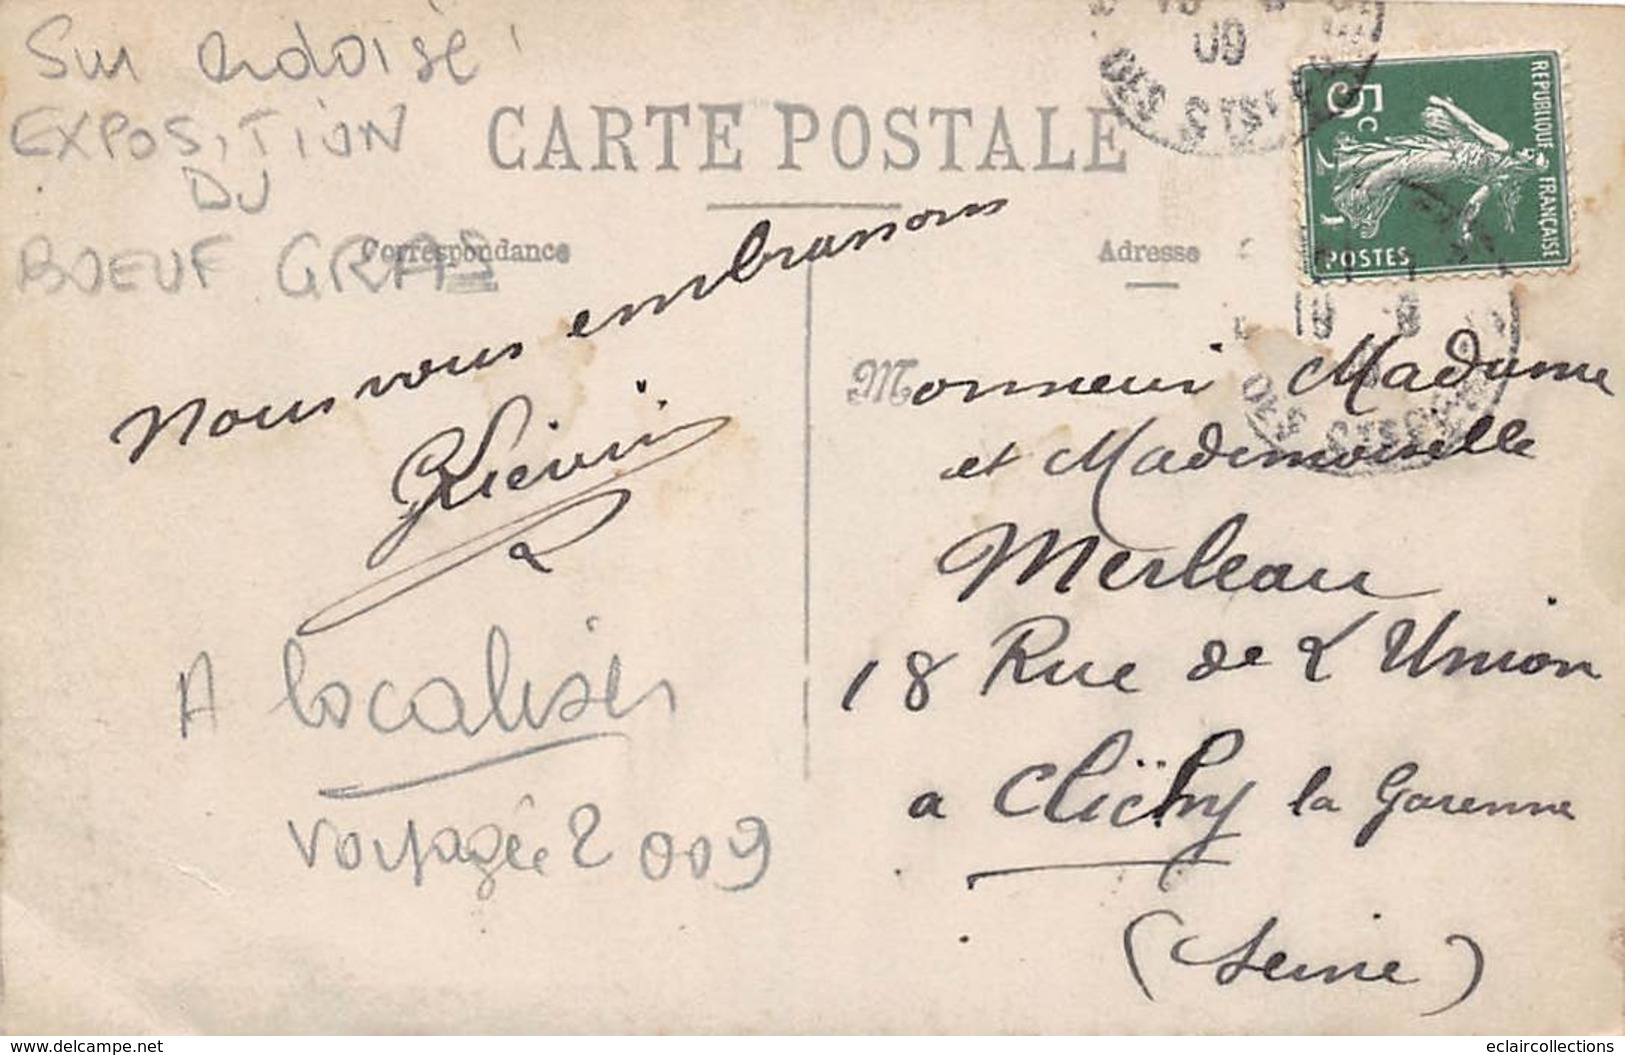 Sur ardoise
EXPOSITION
DU
BOEUF GRAS
CARTE POSTALE
Correspondance
Adresse
RÉPUBLIQUE FRANÇAISE
5c
POSTES
09
Nous vous embrassons
Monsieur Madame
et Mademoiselle
Merleau
18 Rue de L'Union
a Clichy la Garenne
(Seine)
A localiser
voyagée 2 009
www.delcampe.net
eclaircollections